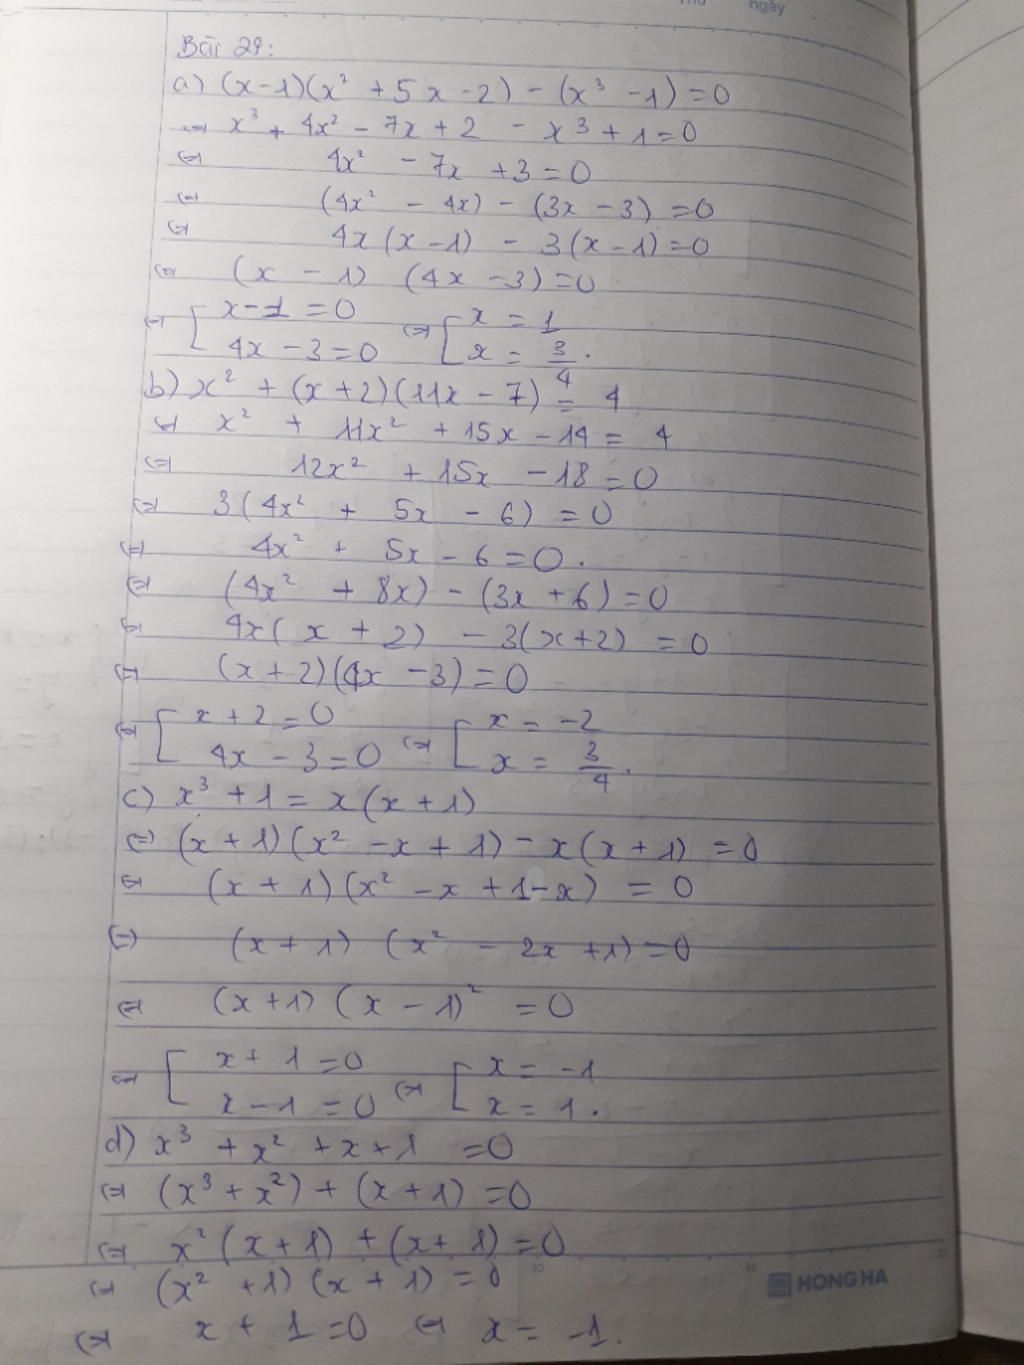 Thứ ngày
Bài 29:
a) (x-1)(x² + 5x - 2) - (x³ - 1) = 0
⇔ x³ + 4x² - 7x + 2 - x³ + 1 = 0
⇔ 4x² - 7x + 3 = 0
⇔ (4x² - 4x) - (3x - 3) = 0
⇔ 4x(x - 1) - 3(x - 1) = 0
⇔ (x - 1) (4x - 3) = 0
⇔ [ x - 1 = 0 ⇔ [ x = 1
4x - 3 = 0 x = 3/4.
b) x² + (x + 2)(11x - 7) = 4
⇔ x² + 11x² + 15x - 14 = 4
⇔ 12x² + 15x - 18 = 0
⇔ 3(4x² + 5x - 6) = 0
⇔ 4x² + 5x - 6 = 0.
⇔ (4x² + 8x) - (3x + 6) = 0
⇔ 4x(x + 2) - 3(x + 2) = 0
⇔ (x + 2)(4x - 3) = 0
⇔ [ x + 2 = 0 ⇔ [ x = -2
4x - 3 = 0 x = 3/4.
c) x³ + 1 = x(x + 1)
⇔ (x + 1)(x² - x + 1) - x(x + 1) = 0
⇔ (x + 1)(x² - x + 1 - x) = 0
⇔ (x + 1) (x² - 2x + 1) = 0
⇔ (x + 1) (x - 1)² = 0
⇔ [ x + 1 = 0 ⇔ [ x = -1
x - 1 = 0 x = 1.
d) x³ + x² + x + 1 = 0
⇔ (x³ + x²) + (x + 1) = 0
⇔ x²(x + 1) + (x + 1) = 0
⇔ (x² + 1)(x + 1) = 0
HONG HA
⇔ x + 1 = 0 ⇔ x = -1.